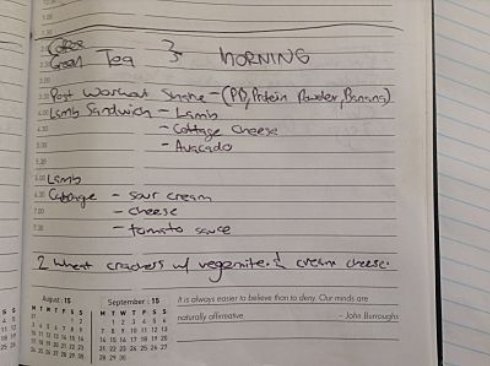 Coffee
Green Tea } MORNING
Post Workout Shake - (PB, Protein Powder, Banana)
Lamb Sandwich - Lamb
- Cottage Cheese
- Avacado
Lamb
Cabbage - sour cream
- cheese
- tomato sauce
2 wheat crackers w/ vegemite & cream cheese.
August : 15
September : 15
M T W T F S S
M T W T F S S
It is always easier to believe than to deny. Our minds are
naturally affirmative.
- John Burroughs